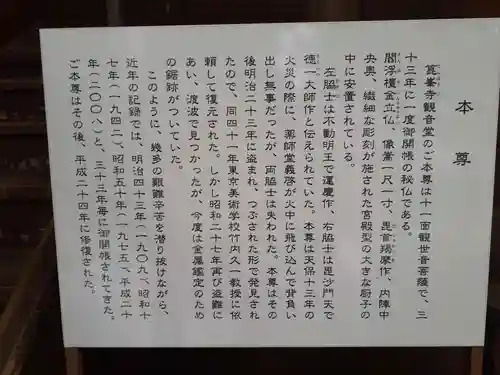 本尊
箟峯寺観音堂のご本尊は十一面観世音菩薩で、三
十三年に一度御開帳の秘仏である。
閻浮檀金立仏、像嵩一尺一寸、毘首羯摩作、内陣中
央奥、繊細な彫刻が施された宮殿型の大きな厨子の
中に安置されている。
左脇士は不動明王で運慶作、右脇士は毘沙門天で
徳一大師作と伝えられていた。本尊は天保十三年の
火災の際に、薬師堂義啓が火中に飛び込んで背負い
出し無事だったが、両脇士は失われた。本尊はその
後明治二十三年に盗まれ、つぶされた形で発見され
たので、同四十一年東京美術学校竹内久一教授に依
頼して復元された。しかし昭和二十七年再び盗難に
あい、渡波で見つかったが、今度は金属鑑定のため
の鋸跡がついていた。
このように、幾多の艱難辛苦を潜り抜けながら、
近年の記録では、明治四十三年(一九〇九)、昭和十
七年(一九四二)、昭和五十年(一九七五)、平成二十
年(二〇〇八)と、三十三年毎に御開帳されてきた。
ご本尊はその後、平成二十四年に修復された。